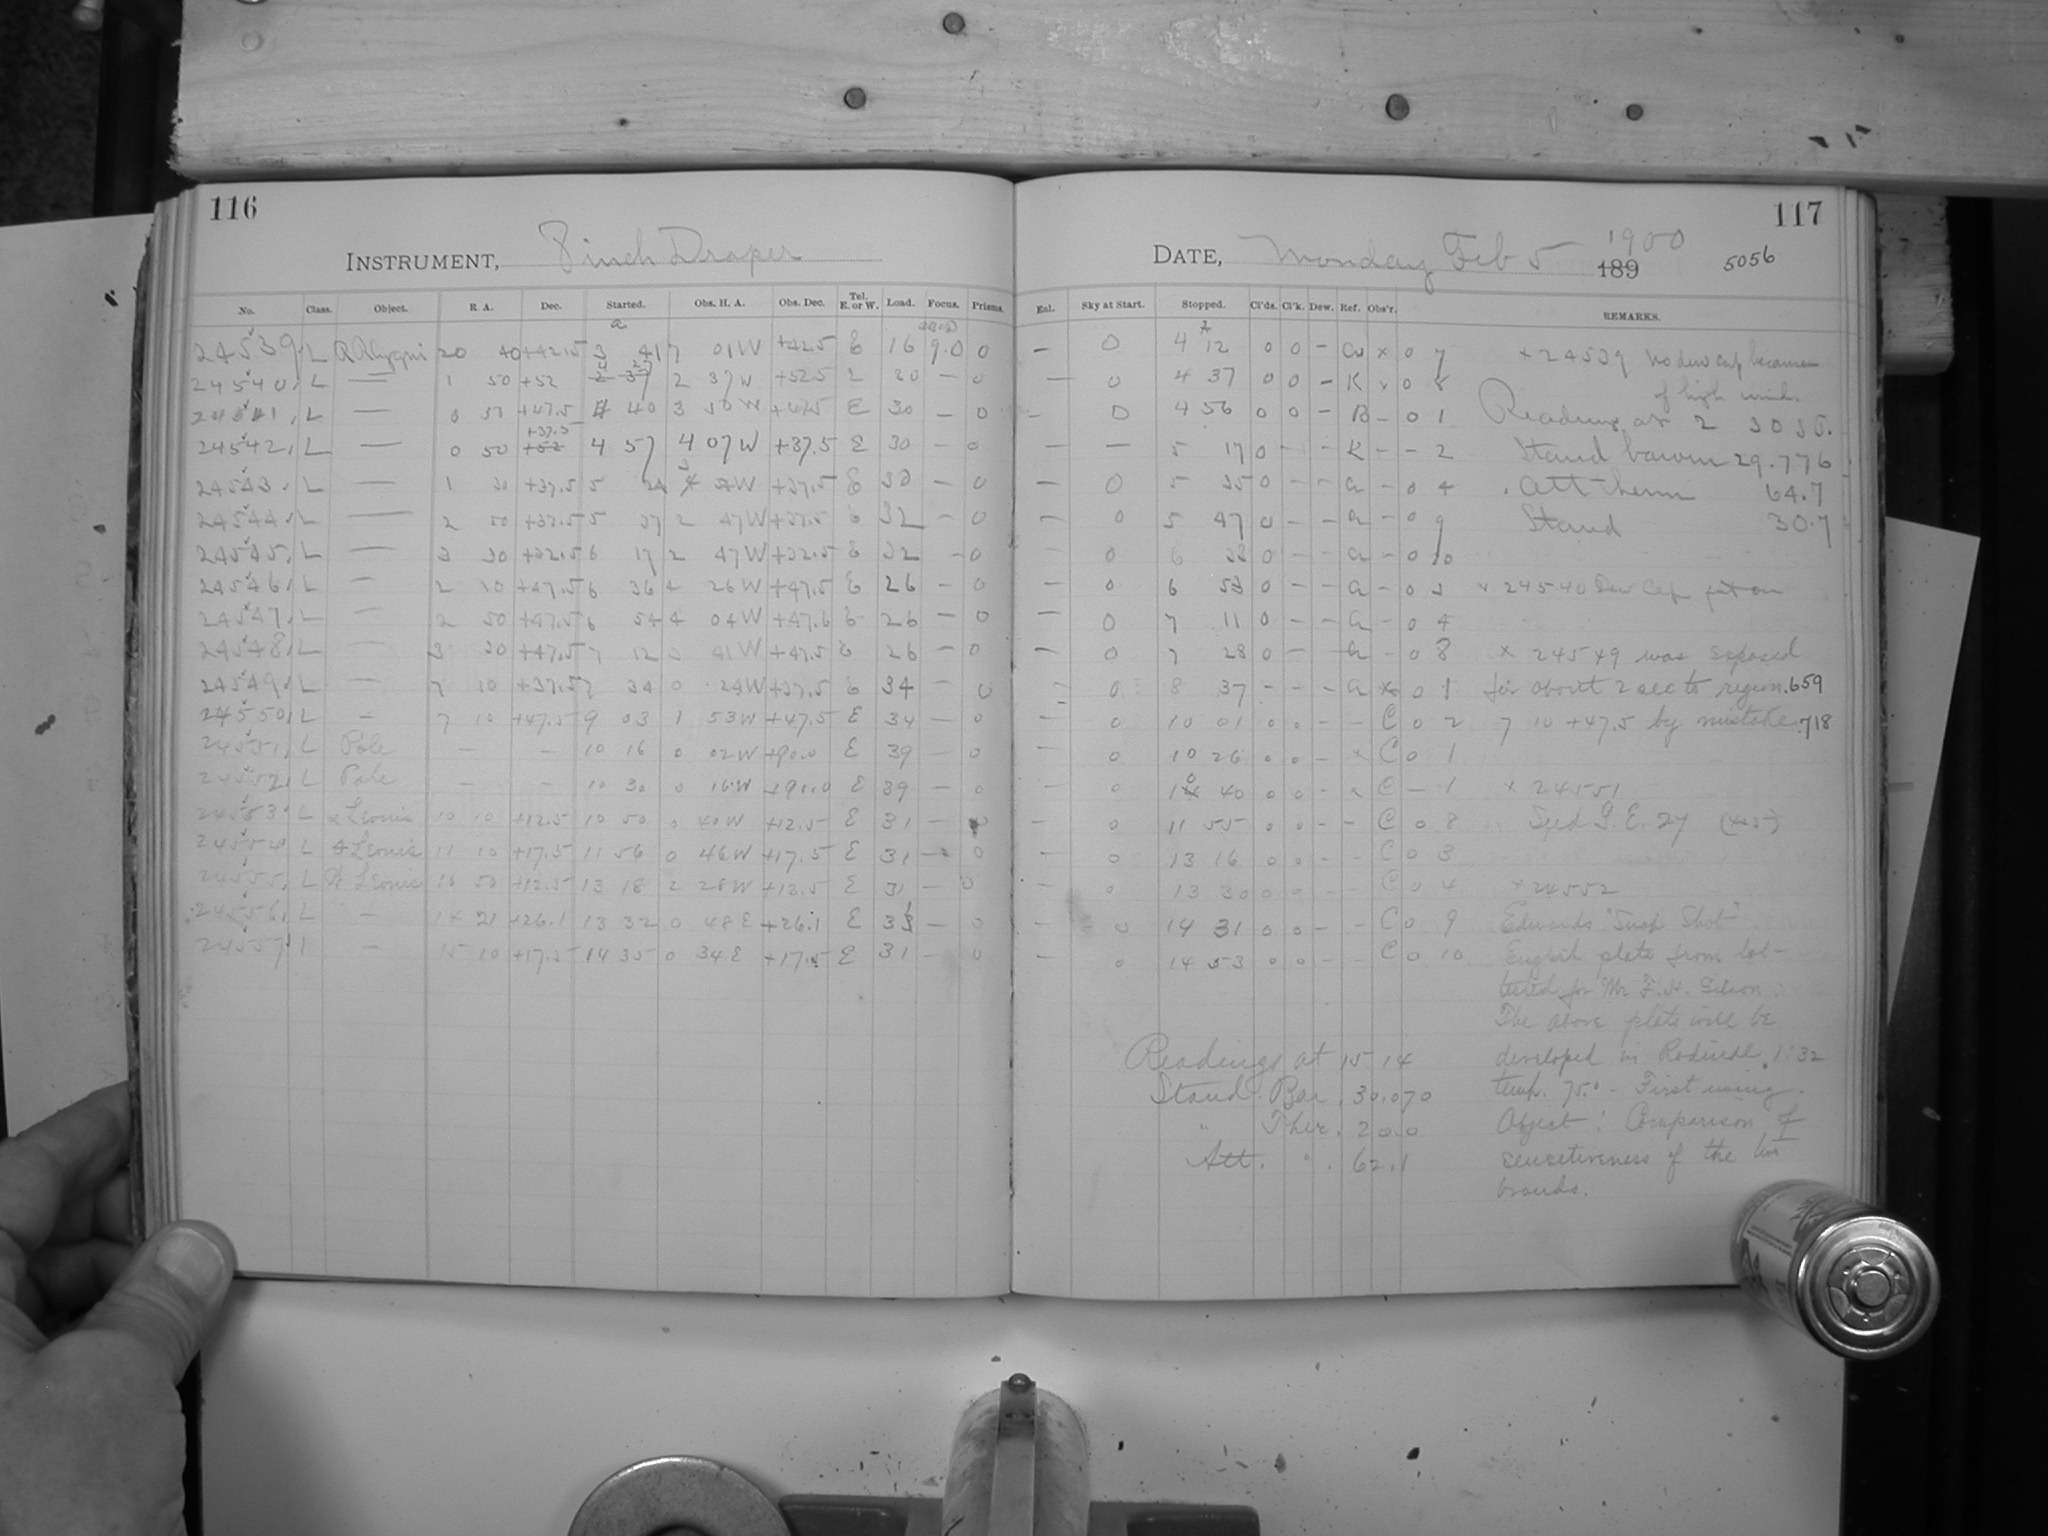 116
INSTRUMENT, 8 inch Draper
No. Class. Object. R A. Dec. Started. Obs. H. A. Obs. Dec. Tel. E. or W. Load. Focus. Prisms.
24539 L 20 40 +42.5 3 41 7 01 W +42.5 E 16 9.0 0
24540 L — 1 50 +52 2 37 W +52.5 30 — 0
24541 L — 0 +47.5 40 3 E 30 — 0
24542 L — 0 50 +37.5 4 57 4 07 W +37.5 E 30 — 0
24543 L — 1 30 +37.5 5 W +37.5 E 30 — 0
24544 L — 2 50 +37.5 5 37 2 47 W +37.5 E 32 — 0
24545 L — 3 30 +32.5 6 17 2 47 W +32.5 E 32 — 0
24546 L — 2 10 +47.5 6 36 4 26 W +47.5 E 26 — 0
24547 L — 2 50 +47.5 6 54 4 04 W E 26 — 0
24548 L — 3 30 +47.5 7 12 3 41 W +47.5 E 26 — 0
24549 L — 7 10 +37.5 7 34 0 24 W +37.5 E 34 — 0
24550 L — 7 10 +47.5 9 03 1 53 W +47.5 E 34 — 0
24551 L Pole — — 10 16 0 02 W +90.0 E 39 — 0
24552 L Pole — — 10 30 0 16 W +90.0 E 39 — 0
24553 L Leonis 10 10 +12.5 10 50 0 40 W +12.5 E 31 — 0
24554 L Leonis 11 10 +17.5 11 56 0 46 W +17.5 E 31 — 0
24555 L Leonis 10 50 +12.5 13 18 2 28 W +12.5 E 31 — 0
24556 L — 14 21 +26.1 13 32 0 48 E +26.1 E 33 — 0
24557 L — 15 10 +17.5 14 35 0 34 E +17.5 E 31 — 0
117
DATE, Monday Feb 5 1900 189 5056
Enl. Sky at Start. Stopped. Cl'ds. Cl'k. Dew. Ref. Obs'r. REMARKS.
— 0 4 12 0 0 — x 0 7 x 24539 No dew cap because
— 0 4 37 0 0 — K x 0 8 of high wind.
— 0 4 56 0 0 — B — 0 1 Readings at 2
— — 5 17 0 — — K — — 2 Stand barom 29.776
— 0 5 35 0 — — a — 0 4 Att therm 64.7
— 0 5 47 0 — — a — 0 9 Stand 30.7
— 0 6 33 0 — — a — 0 10
— 0 6 53 0 — — a — 0 3 x 24540 Dew Cap put on
— 0 7 11 0 — — a — 0 4
— 0 7 28 0 — — a — 0 8 x 24549 was exposed
— 0 8 37 — — — a x 0 1 for about 2 sec to region .659
— 0 10 01 0 0 — — C 0 2 7 10 +47.5 by mistake .718
0 10 26 0 0 — x C 0 1
— 0 10 40 0 0 — x C — 1 x 24551
— 0 11 55 0 0 — — C 0 8 Sped G. E. 27
— 0 13 16 0 0 — — C 0 3
— 0 13 30 0 0 — — C 0 4 x 24552
— 0 14 31 0 0 — — C 0 9 Edwards "Snap Shot"
— 0 14 53 0 0 — — C 0 10 English plate from lot
tested for Mr F. H. Gilson.
The above plate will be
Readings at 15 14 developed in Rodinal, 1:32
Stand. Bar. 30.070 temp. 75.° — First using.
" Ther. 20.0 Object: Comparison of
Att. " . 62.1 sensetiveness of the two
brands.